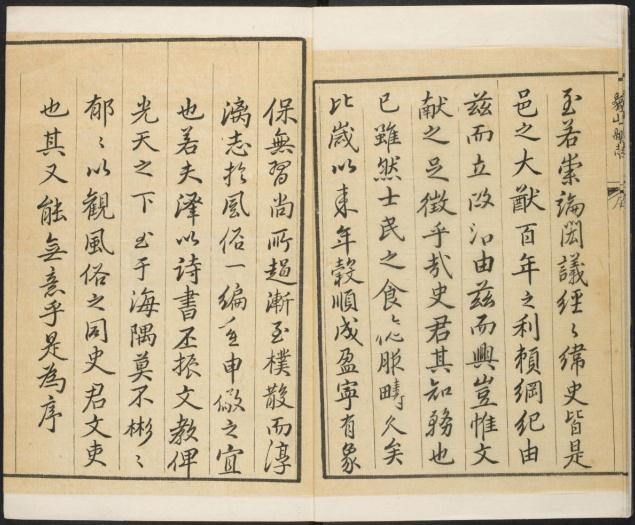 至若崇論閎議經〻緯史皆是
邑之大猷百年之利賴綱紀由
茲而立政治由茲而興豈惟文
献之足徵乎哉史君其知務也
已雖然士民之食〻化服疇久矣
比歲以来年穀順成盈寧有象
保無習尚所趨漸至樸散而淳
漓志於風俗一編至申儆之宜
也若夫澤以詩書丕振文教俾
光天之下至于海隅莫不彬〻
郁〻以観風俗之同史君文吏
也其又能無意乎是為序